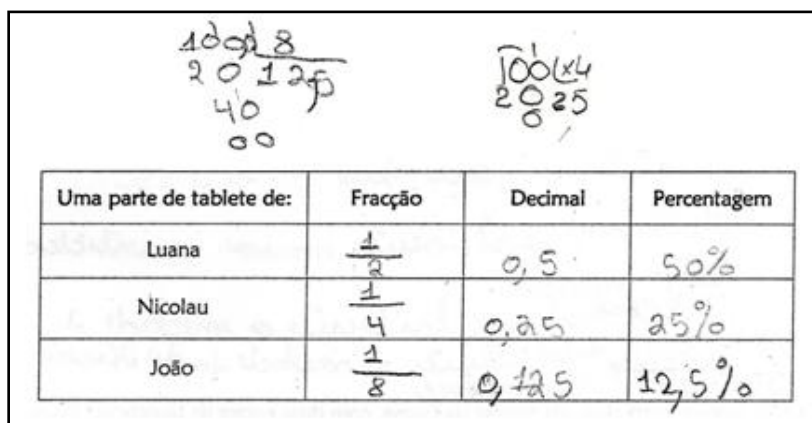 100,0 8
20 12,5
40
00
100 4
20 25
0
Uma parte de tablete de: Fracção Decimal Percentagem
Luana 1/2 0,5 50%
Nicolau 1/4 0,25 25%
João 1/8 0,125 12,5%